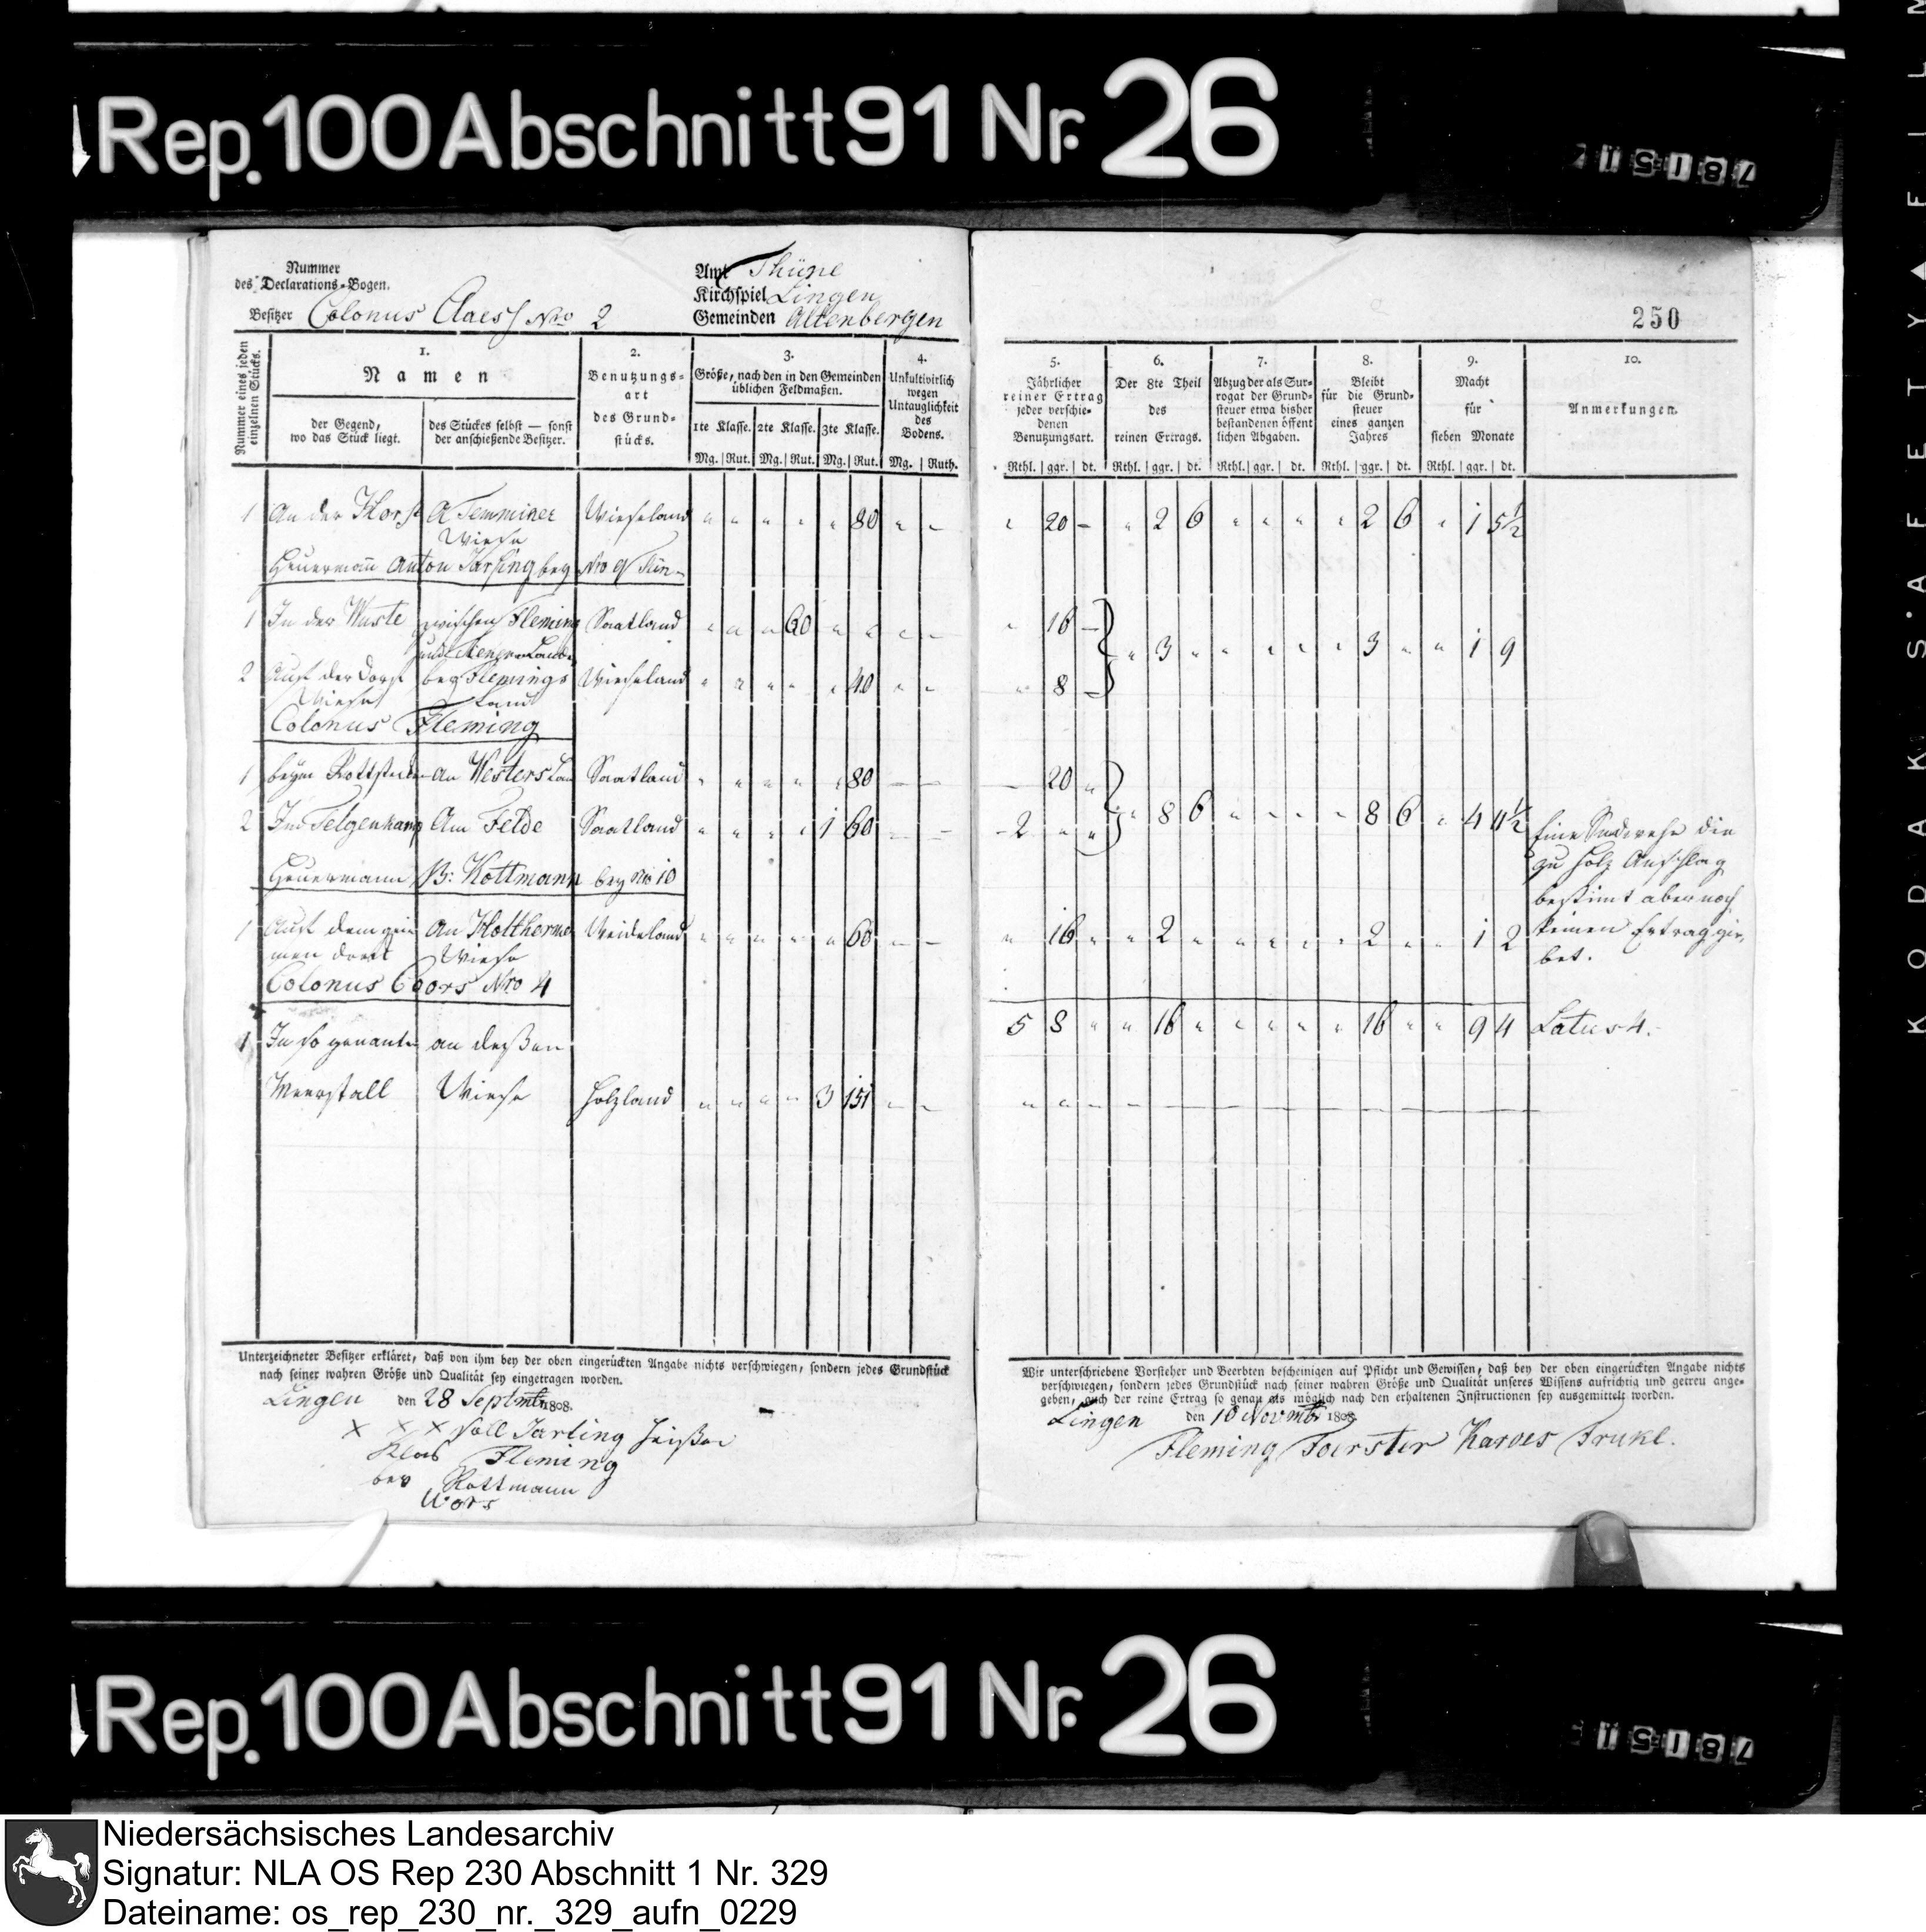 Rep. 100 Abschnitt 91 Nr. 26
Nummer
des Declarations-Bogen.
Besitzer Colonus Claes No 2
Amt Thüne
Kirchspiel Lingen
Gemeinden Altenbergen
250
Nummer eines jeden einzelnen Stücks.
1.
Namen
der Gegend, wo das Stück liegt.
des Stückes selbst — sonst der anschießende Besitzer.
2.
Benutzungs-
art
des Grund-
stücks.
3.
Größe, nach den in den Gemeinden
üblichen Feldmaßen.
1te Klasse. 2te Klasse. 3te Klasse.
Mg. Rut. Mg. Rut. Mg. Rut.
4.
Unkultivirlich
wegen
Untauglichkeit
des
Bodens.
Mg. Ruth.
5.
Jährlicher
reiner Ertrag
jeder verschie-
denen
Benutzungsart.
Rthl. ggr. dt.
6.
Der 8te Theil
des
reinen Ertrags.
Rthl. ggr. dt.
7.
Abzug der als Sur-
rogat der Grund-
steuer etwa bisher
bestandenen öffent
lichen Abgaben.
Rthl. ggr. dt.
8.
Bleibt
für die Grund-
steuer
eines ganzen
Jahres
Rthl. ggr. dt.
9.
Macht
für
sieben Monate
Rthl. ggr. dt.
10.
Anmerkungen.
1 An der Horst Wieseland 80 20 2 6 2 6 1 5½
Wiese
Heuermann Anton bey No 9
1 In der Wuste zwischen Fleming Saatland 60 16
3 3 1 9
2 Auf der bey Flemings Wieseland 40 8
Wiese Land
Colonus Fleming
1 beym an Westers Saatland 80 20
2 Am Felde Saatland 1 60 2 8 6 8 6 4 11½
Heuermann B: Kottmann bey No 10
1 Auf dem an Wiese Weideland 60 16 2 2 1 2
Eine die
zu Holz Anschlag
bestimt aber noch
keinen Ertrag gie-
bet.
Colonus Coors Nro 4
5 8 16 16 9 4 Latus 4.
1 In so genanten an deßen
Meerstall Wiese Holzland 3 151
Unterzeichneter Besitzer erkläret, daß von ihm bey der oben eingerückten Angabe nichts verschwiegen, sondern jedes Grundstück
nach seiner wahren Größe und Qualität sey eingetragen worden.
Lingen den 28 Septmbr 1808.
X X X
Fleming
Kottmann
Wir unterschriebene Vorsteher und Beerbten bescheinigen auf Pflicht und Gewissen, daß bey der oben eingerückten Angabe nichts
verschwiegen, sondern jedes Grundstück nach seiner wahren Größe und Qualität unseres Wissens aufrichtig und getreu ange-
geben, auch der reine Ertrag so genau als möglich nach den erhaltenen Instructionen sey ausgemittelt worden.
Lingen den 10 Novmbr 1808
Fleming Foerster Karves
Rep. 100 Abschnitt 91 Nr. 26
Niedersächsisches Landesarchiv
Signatur: NLA OS Rep 230 Abschnitt 1 Nr. 329
Dateiname: os_rep_230_nr._329_aufn_0229
KODAK SAFETY FILM